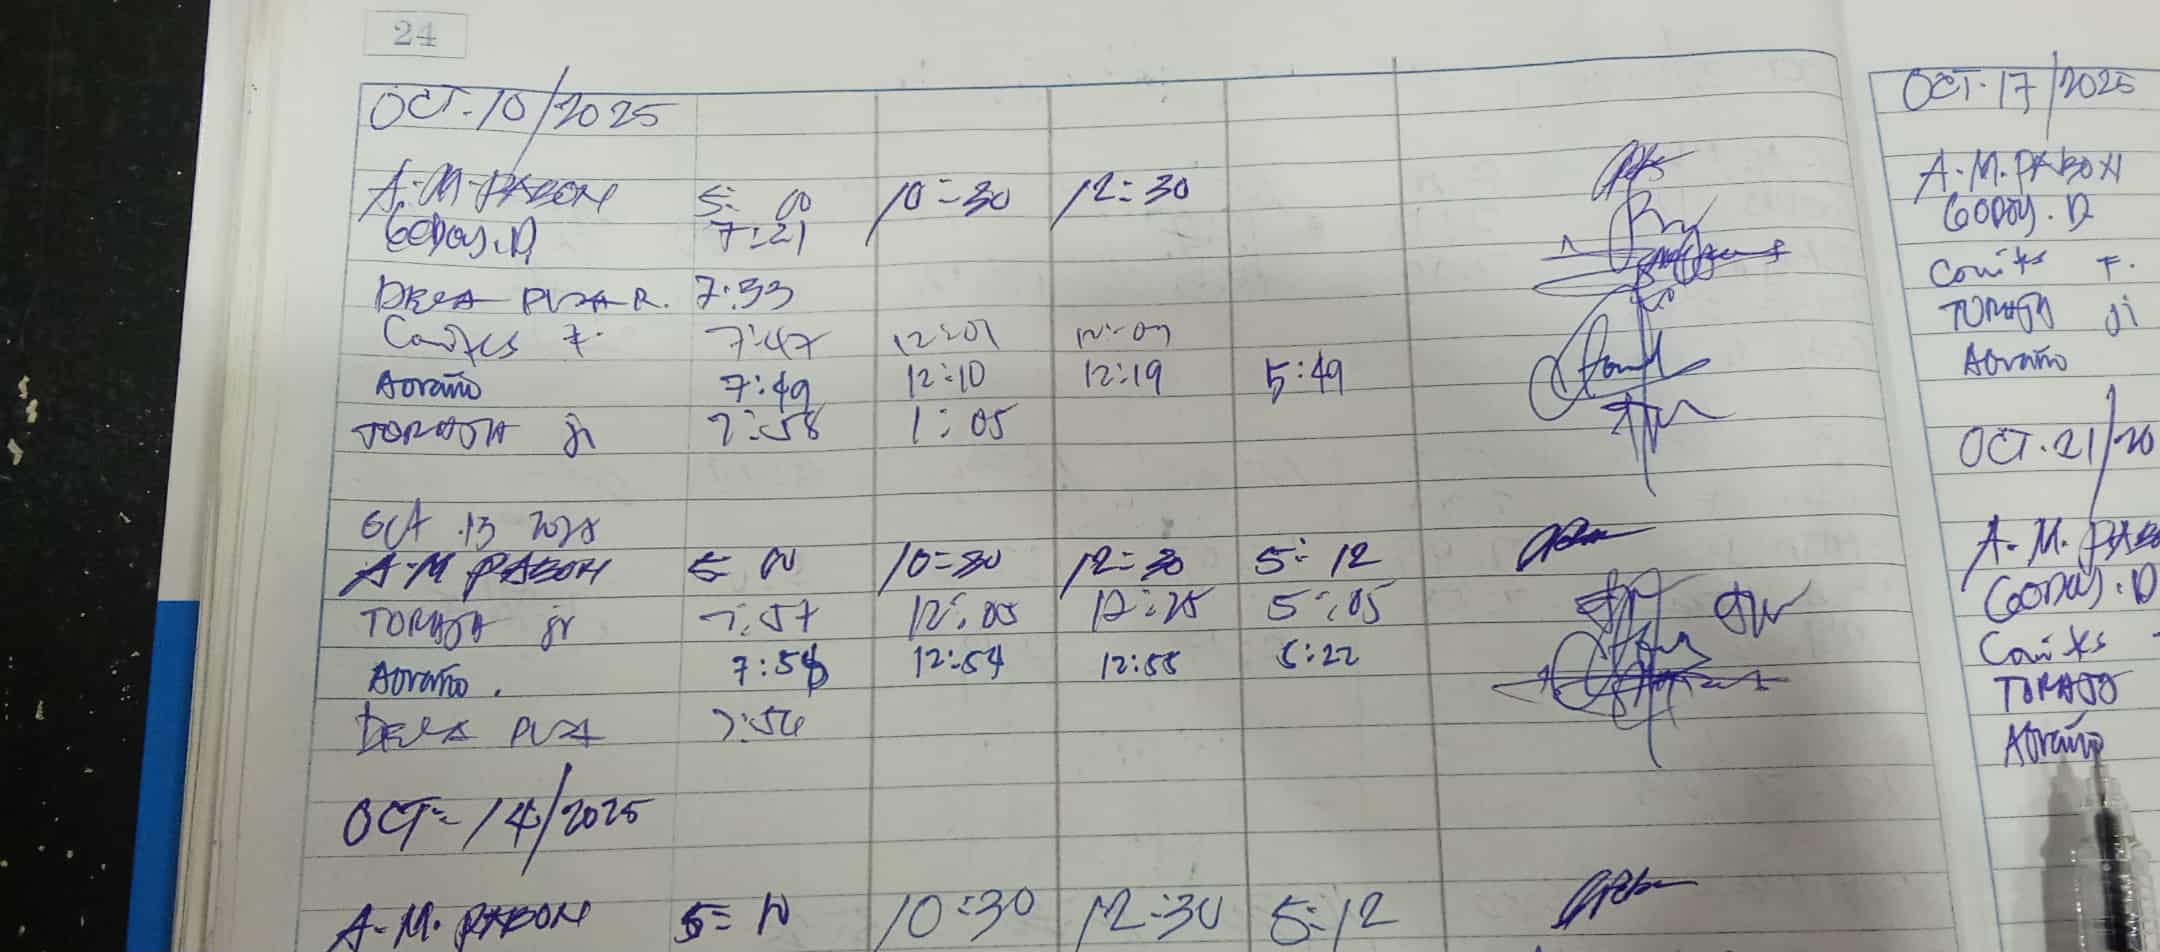 24
OCT.10/2025
A.M.PABON 5:00 10:30 12:30
GODOY.D 7:21
DELA PUZA R. 7:33
Cañtes F. 7:47 12:01 12:09
Aoraño 7:49 12:10 12:19 5:49
TORAJA jr 7:58 1:05
Oct .13 2025
A.M PABON 5:00 10:30 12:30 5:12
TORAJA jr 7:57 12:05 12:25 5:05
Aoraño . 7:58 12:54 12:55 5:22
DELA PUZA 7:56
OCT-14/2025
A.M. PABON 5:10 10:30 12:30 5:12
OCT.17/2025
A.M.PABON
GODOY.D
F.
TORAJA ji
Aoraño
OCT.21/20
A.M. PABO
GODOY.D
TORAJO
Aoraño